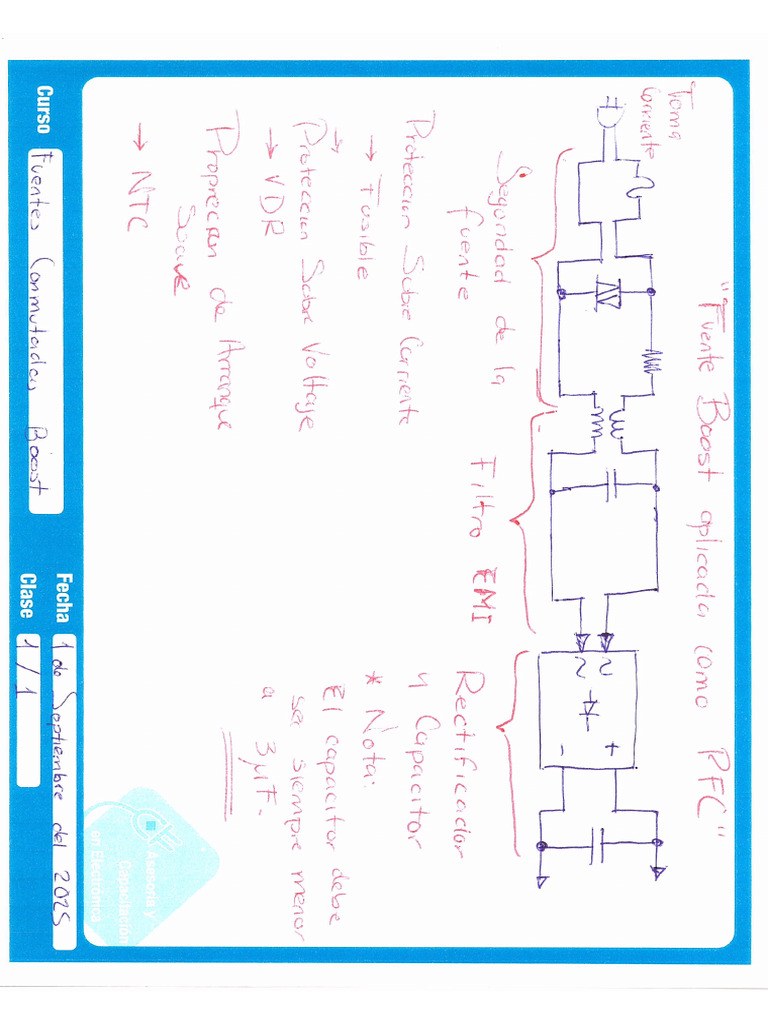 "Fuente Boost aplicada como PFC"
Toma
Corriente
Seguridad de la
fuente
Filtro EMI
Rectificador
y Capacitor
* Nota:
El capacitor debe
ser siempre menor
a 3µF.
Proteccion Sobre Corriente
→ Fusible
→
Proteccion Sobre Voltaje
→ VDR
Proprecion de Arranque
Suave
→ NTC
~
~
+
-
Curso Fuentes Conmutadas Boost
Fecha 1 de Septiembre del 2025
Clase 1 / 1
Asesoría y
Capacitación
en Electrónica